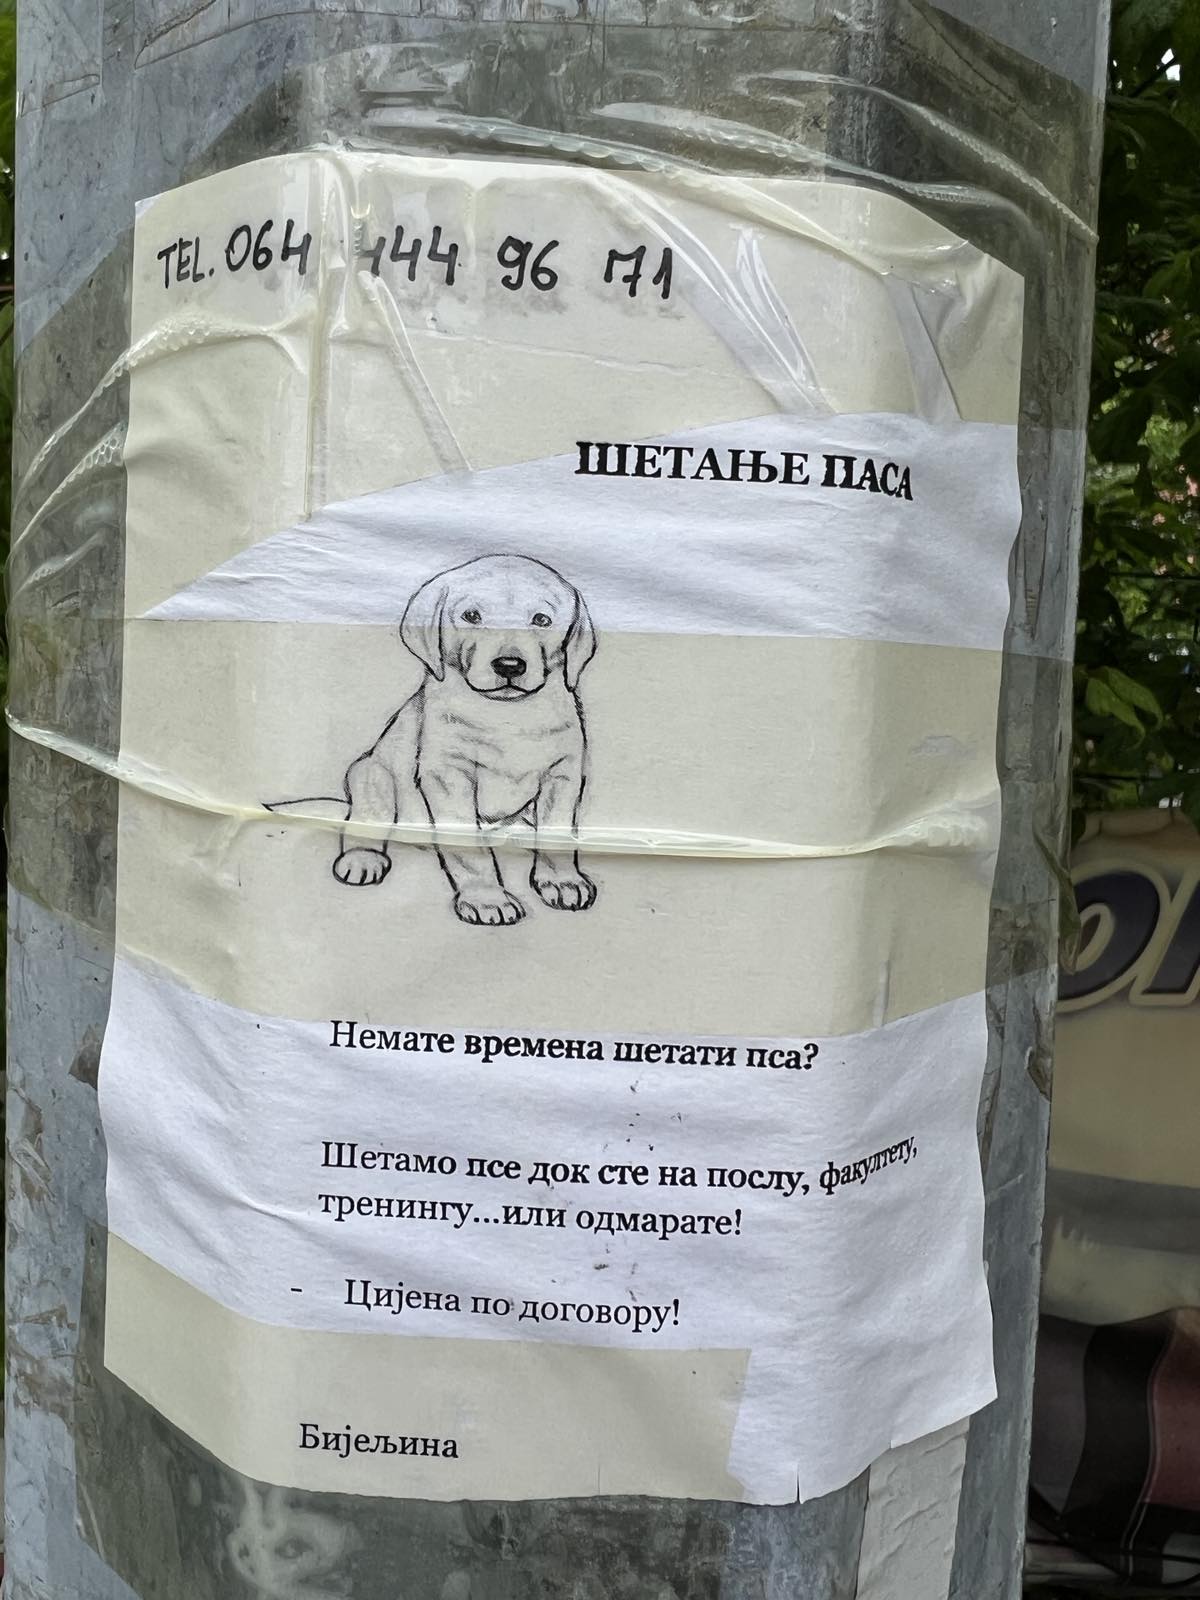 TEL. 064 444 96 71
ШЕТАЊЕ ПАСА
Немате времена шетати пса?
Шетамо псе док сте на послу, факултету,
тренингу...или одмарате!
- Цијена по договору!
Бијељина